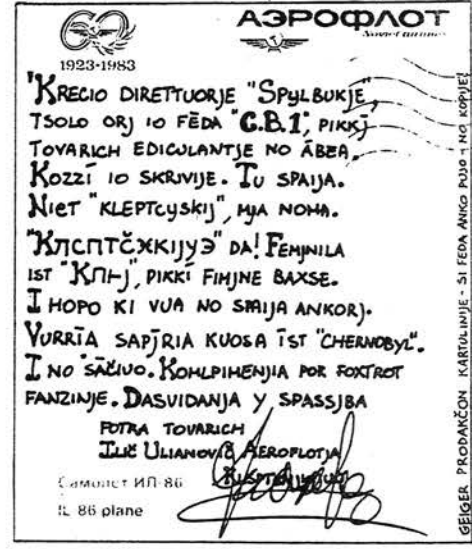 АЭРОФЛОТ
Soviet airlines
1923-1983
'KRECIO DIRETTUORJE "SPYLBUKJE",
TSOLO ORJ IO FĒDA "C.B.1", PIKKJ
TOVARICH EDICULANTJE NO ÁBEA.
KOZZÍ IO SKRIVIJE. TU SPAIJA.
NIET "KLEPTCYSKIJ", MJA NOMA.
DA! FEMJNILA
IST PIKKÍ FIMJNE BAXSE.
I HOPO KI VUA NO SMIJA ANKORJ.
VURRĪA SAPJRIA KUOSA ĪST "CHERNOBYL".
I NO SĀČIVO. KOMLPIMENJIA POR FOXTROT
FANZINJE. DASVIDANJA Y SPASSJBA
FOTRA TOVARICH
ILIČ ULIANOVIČ AEROFLOTJA
Самолет ИЛ-86
IL 86 plane
GEIGER PRODAKČON KARTULINIJE - SI FEDA ANKO PUJO - NO KOPIJE!